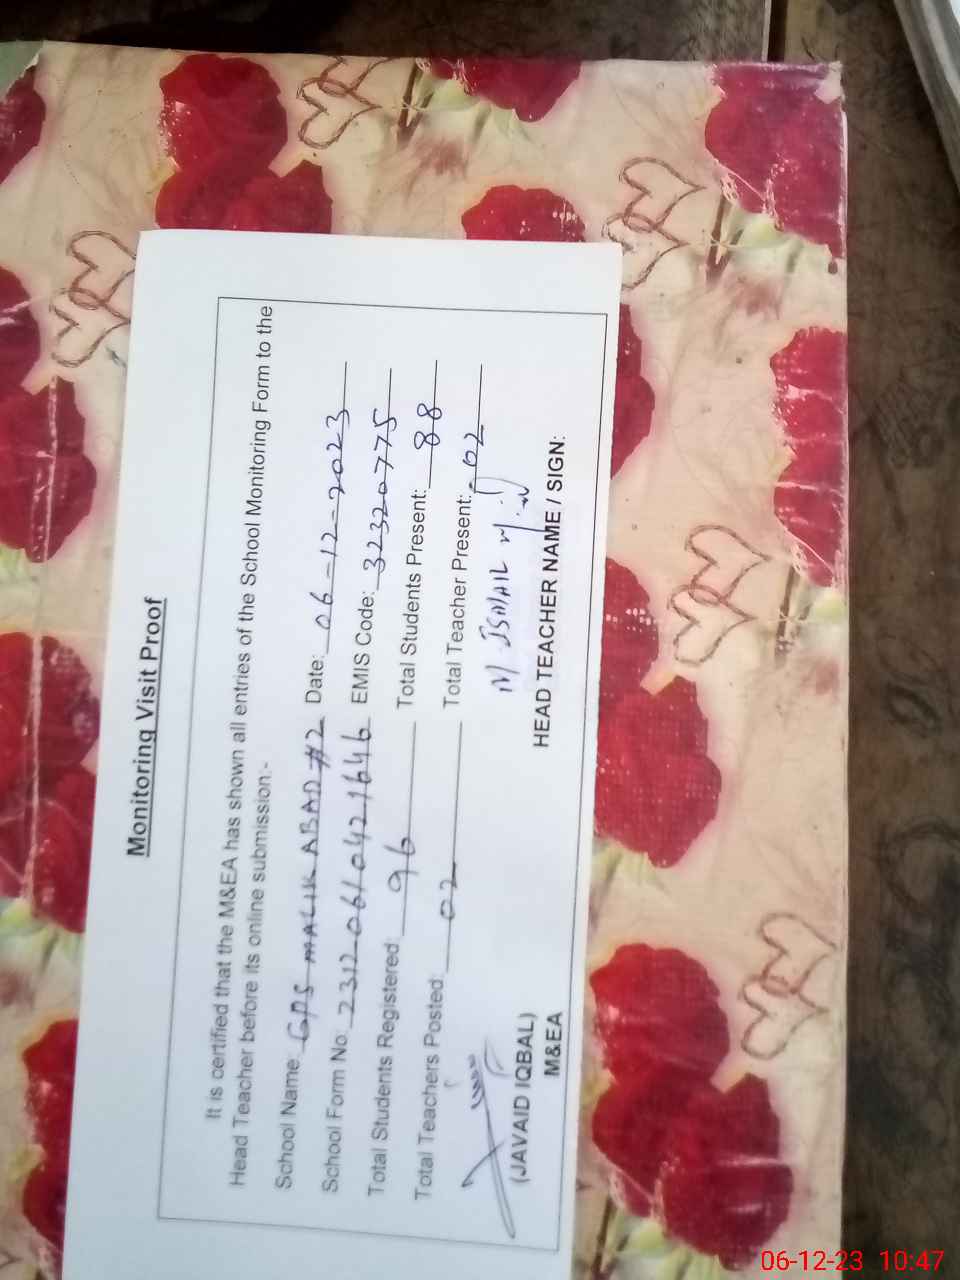 Monitoring Visit Proof
It is certified that the M&EA has shown all entries of the School Monitoring Form to the
Head Teacher before its online submission:-
School Name: GPS MALIK ABAD #2 Date: 06-12-2023
School Form No: 23120610421646 EMIS Code: 32320775
Total Students Registered: 96 Total Students Present: 88
Total Teachers Posted: 02 Total Teacher Present: 02
M. ISMAIL
(JAVAID IQBAL) HEAD TEACHER NAME / SIGN:
M&EA
06-12-23 10:47